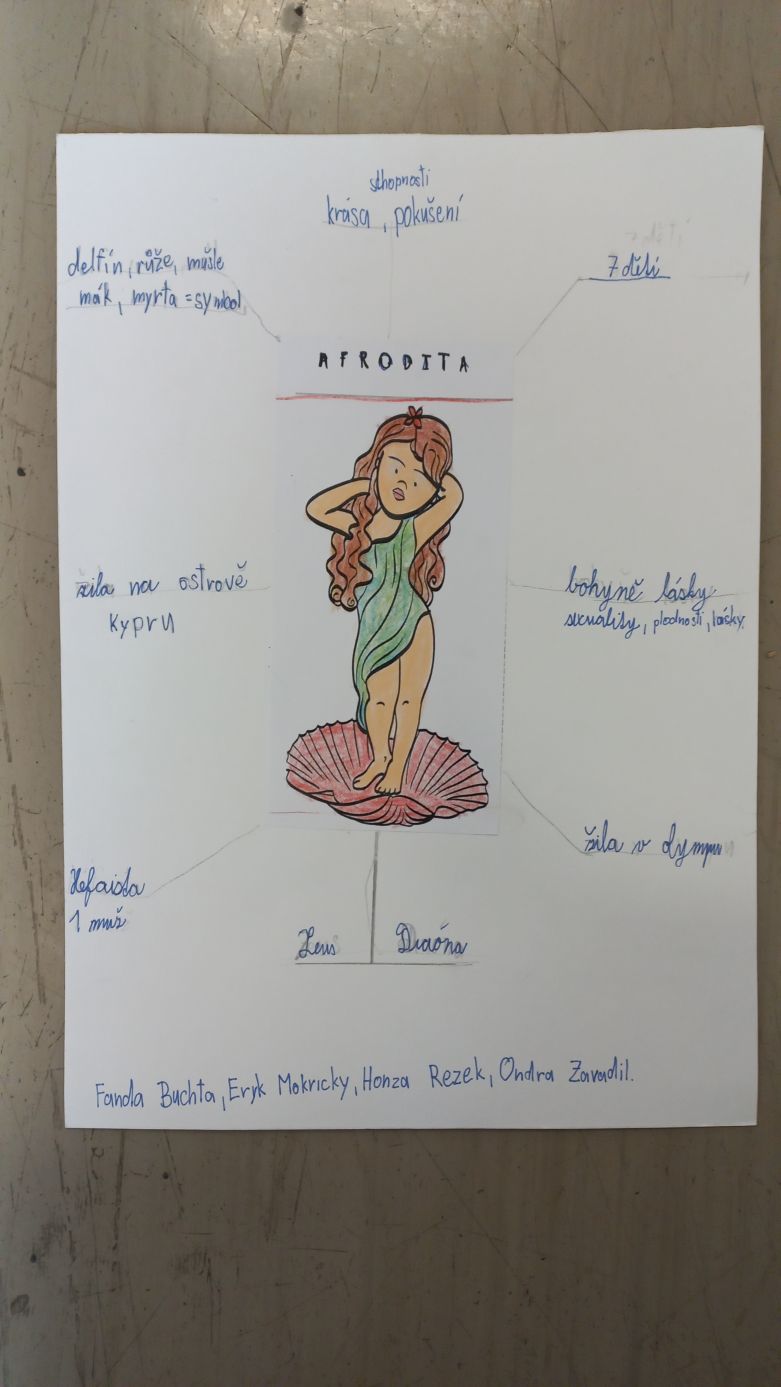 schopnosti
krása, pokušení
delfín, růže, mušle
mák, myrta = symbol
7 dětí
AFRODITA
žila na ostrově
Kypru
bohyně lásky
sexuality, plodnosti, lásky.
žila v Olympu
Hefaista
1 muž
Zeus
Diaóna
Fanda Buchta, Eryk Mokricky, Honza Rezek, Ondra Zavadil.